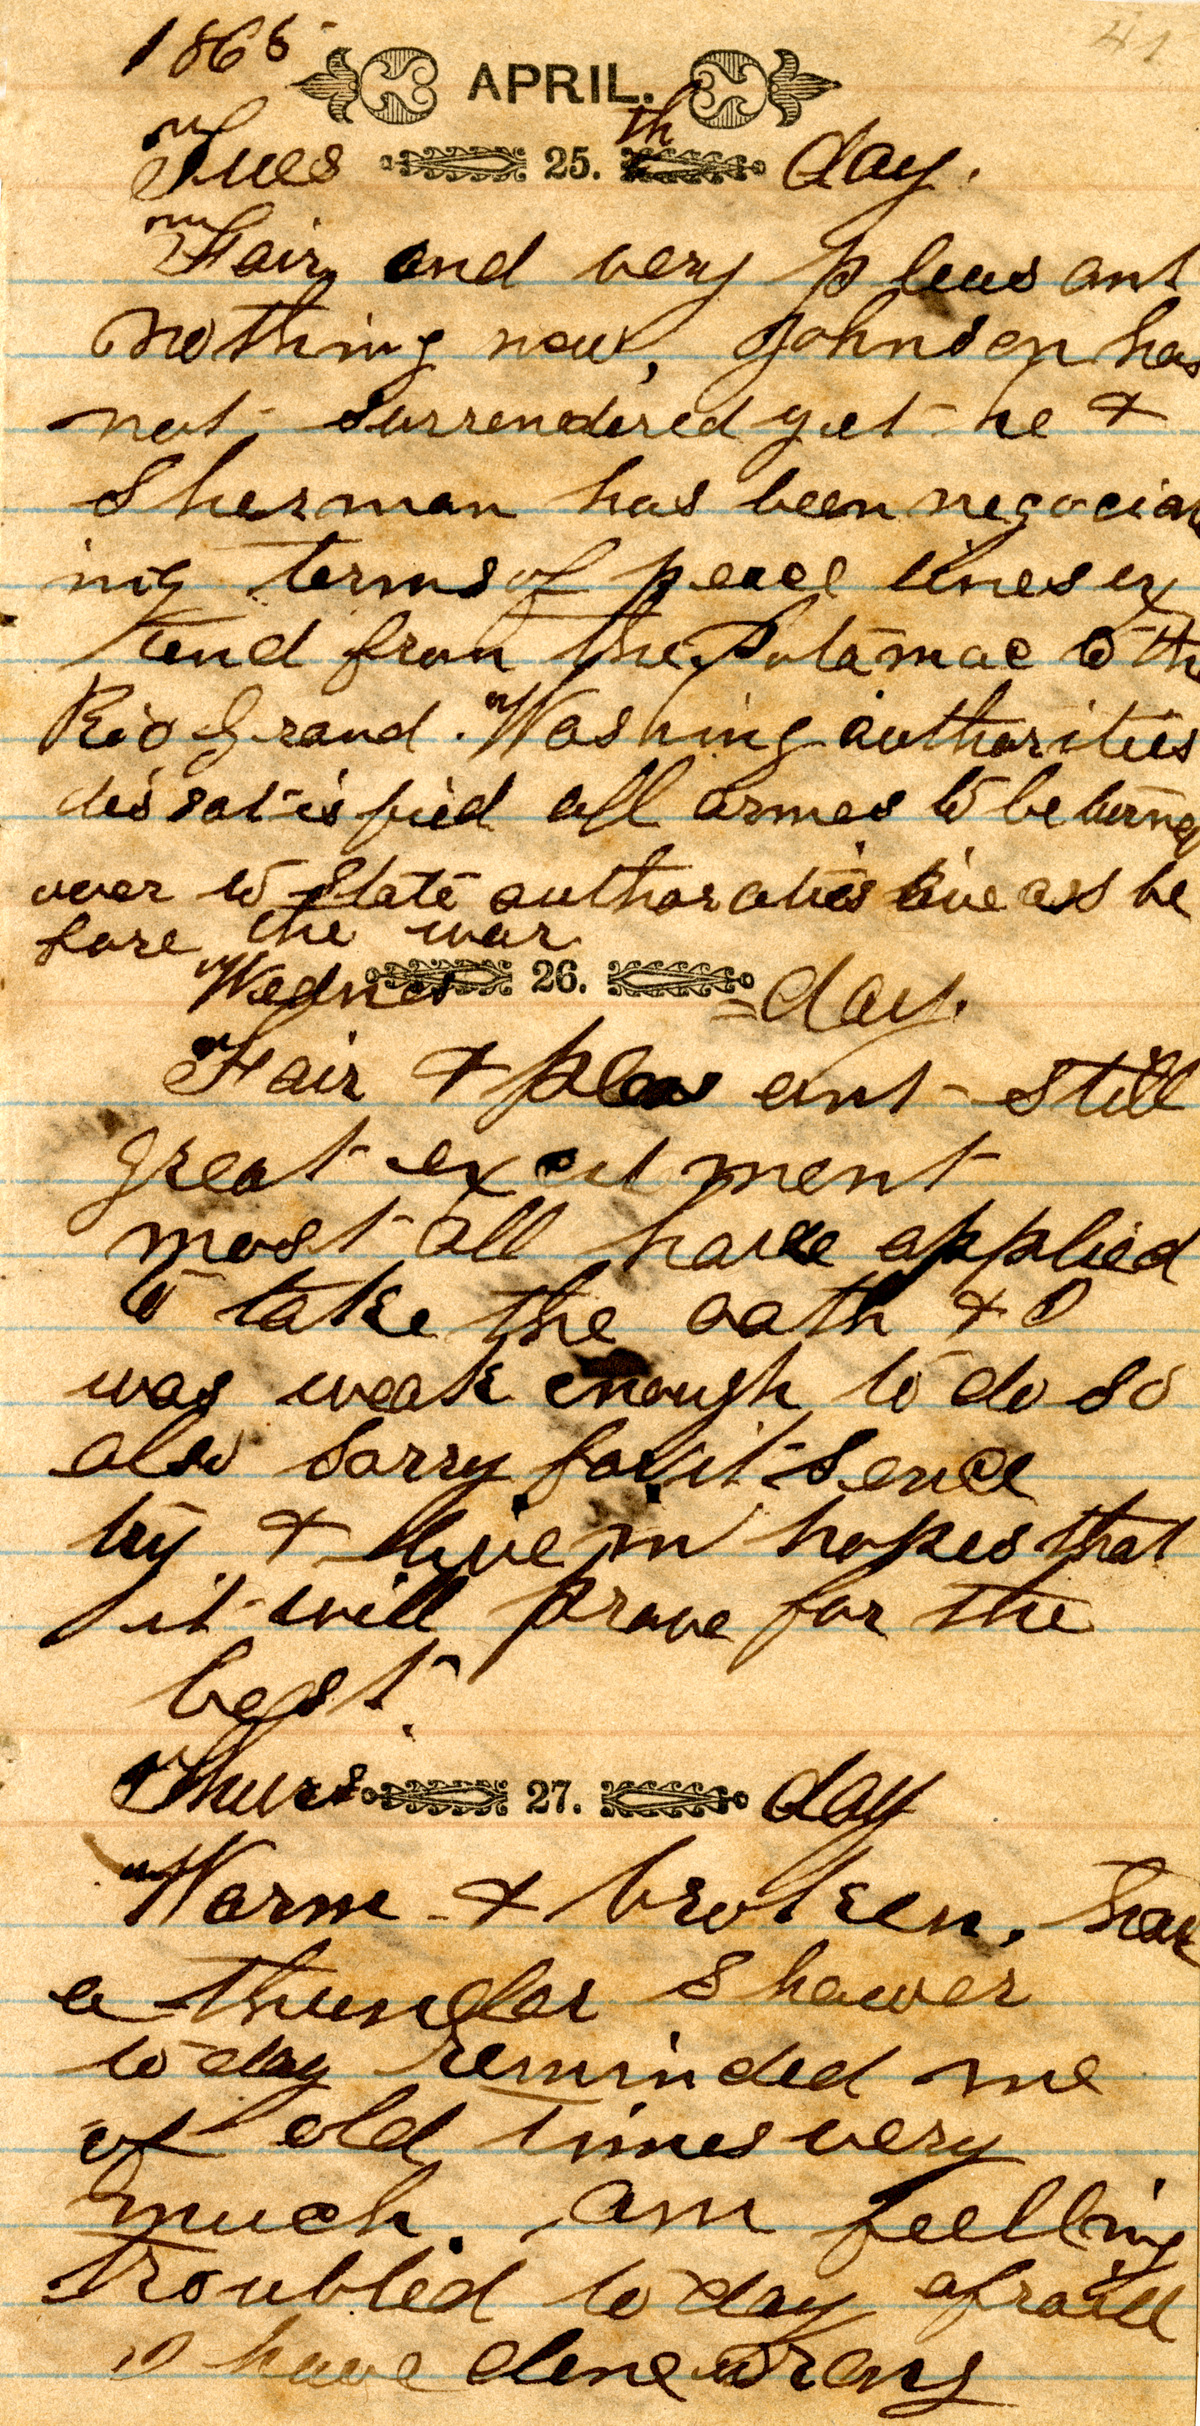 1865
41
APRIL.
Tues 25. th day.
Fair and very pleasant
nothing new, Johnson has
not surrendered yet he &
Sherman has been negociat
ing terms of peace lines ex
tend from the Potamac to the
Rio Grand. Washing authorities
dissatisfied all armes to be turned
over to State authoraties live as be
fore the war
Wednes 26. day.
Fair & pleasant still
great excitment
most all have applied
to take the oath & I
was weak enough to do so
also sorry for it sence
try & live in hopes that
it will prove for the
best.
Thurs 27. day
Warm & broken. had
a thunder shower
to day reminded me
of old times very
much. am feelling
troubled to day afraid
I have done wrong